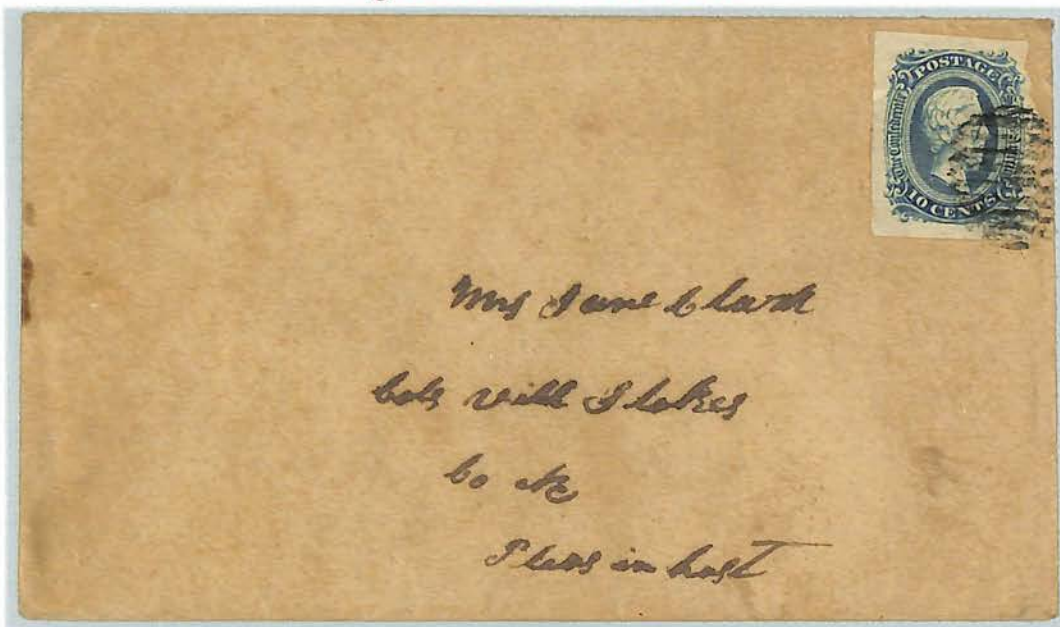 POSTAGE
The Confederate
10 CENTS
Mrs Jane Clark
Cols vill Stokes
Co NC
Pleas in hast